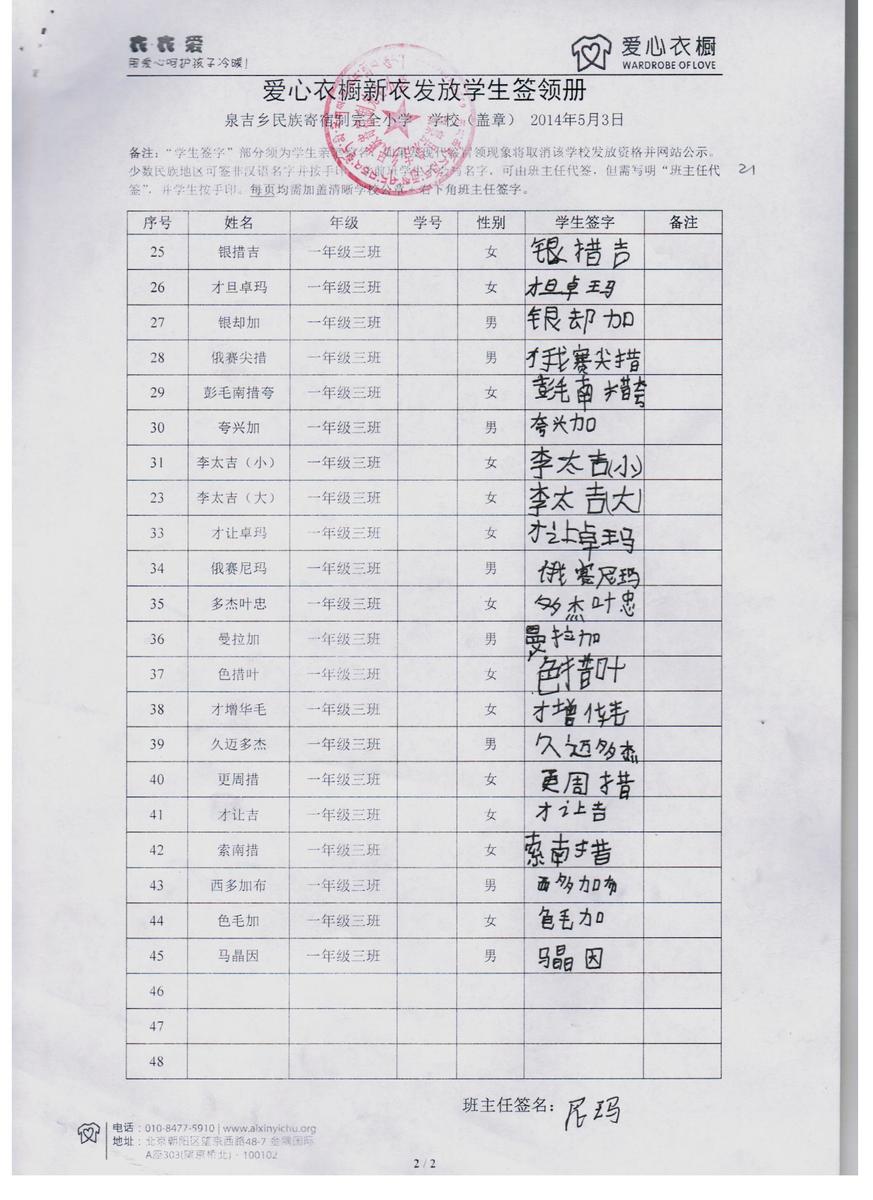 衣·衣爱
用爱心呵护孩子冷暖!
爱心衣橱
WARDROBE OF LOVE
爱心衣橱新衣发放学生签领册
泉吉乡民族寄宿制完全小学 学校（盖章） 2014年5月3日
备注：“学生签字”部分须为学生亲 领现象将取消该学校发放资格并网站公示。
少数民族地区可签非汉语名字并按手印 名字，可由班主任代签，但需写明“班主任代 21
签”，并学生按手印。每页均需加盖清晰学校公章，右下角班主任签字。
序号 姓名 年级 学号 性别 学生签字 备注
25 银措吉 一年级三班 女 银措吉
26 才旦卓玛 一年级三班 女 才旦卓玛
27 银却加 一年级三班 男 银却加
28 俄赛尖措 一年级三班 男 俄赛尖措
29 彭毛南措夸 一年级三班 女 彭毛南措夸
30 夸兴加 一年级三班 男 夸兴加
31 李太吉（小） 一年级三班 女 李太吉(小)
23 李太吉（大） 一年级三班 女 李太吉(大)
33 才让卓玛 一年级三班 女 才让卓玛
34 俄赛尼玛 一年级三班 男 俄赛尼玛
35 多杰叶忠 一年级三班 女 多杰叶忠
36 曼拉加 一年级三班 男 曼拉加
37 色措叶 一年级三班 女 色措叶
38 才增华毛 一年级三班 女 才增华毛
39 久迈多杰 一年级三班 男 久迈多杰
40 更周措 一年级三班 女 更周措
41 才让吉 一年级三班 女 才让吉
42 索南措 一年级三班 女 索南措
43 西多加布 一年级三班 男 西多加布
44 色毛加 一年级三班 女 色毛加
45 马晶因 一年级三班 男 马晶因
46
47
48
班主任签名：尼玛
电话：010-8477-5910 | www.aixinyichu.org
地址：北京朝阳区望京西路48-7 金隅国际
A座303(望京桥北)·100102
2 / 2